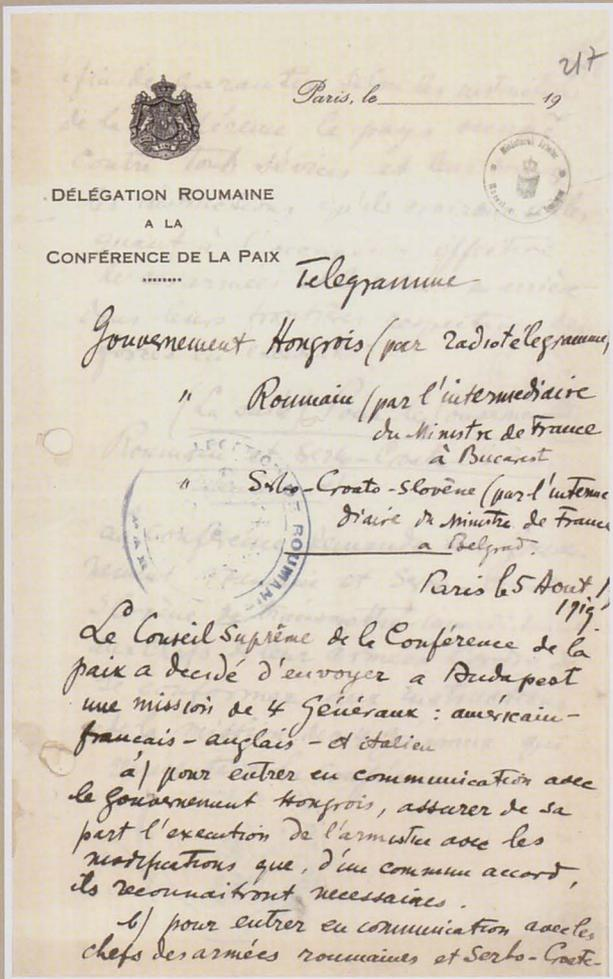 217
Paris, le 19
DÉLÉGATION ROUMAINE
A LA
CONFÉRENCE DE LA PAIX
Telegramme
Gouvernement Hongrois (par radiotélégramme,
" Roumain (par l'intermediaire
du Ministre de France
à Bucarest
" Serbo-Croato-Slovène (par l'interme
diaire du Ministre de France
a Belgrad.
Paris le 5 Aout
1919
Le Conseil Suprême de la Conférence de la
paix a decidé d'envoyer a Budapest
une mission de 4 Généraux : américain-
francais - anglais - et italien
a) pour entrer en communication avec
le gouvernement Hongrois, assurer de sa
part l'execution de l'armistice avec les
modifications que, d'un commun accord,
ils reconnaitront necessaires.
b) pour entrer en communication avec les
chefs des armées roumaines et Serbo-Croato-
ROUMANIE